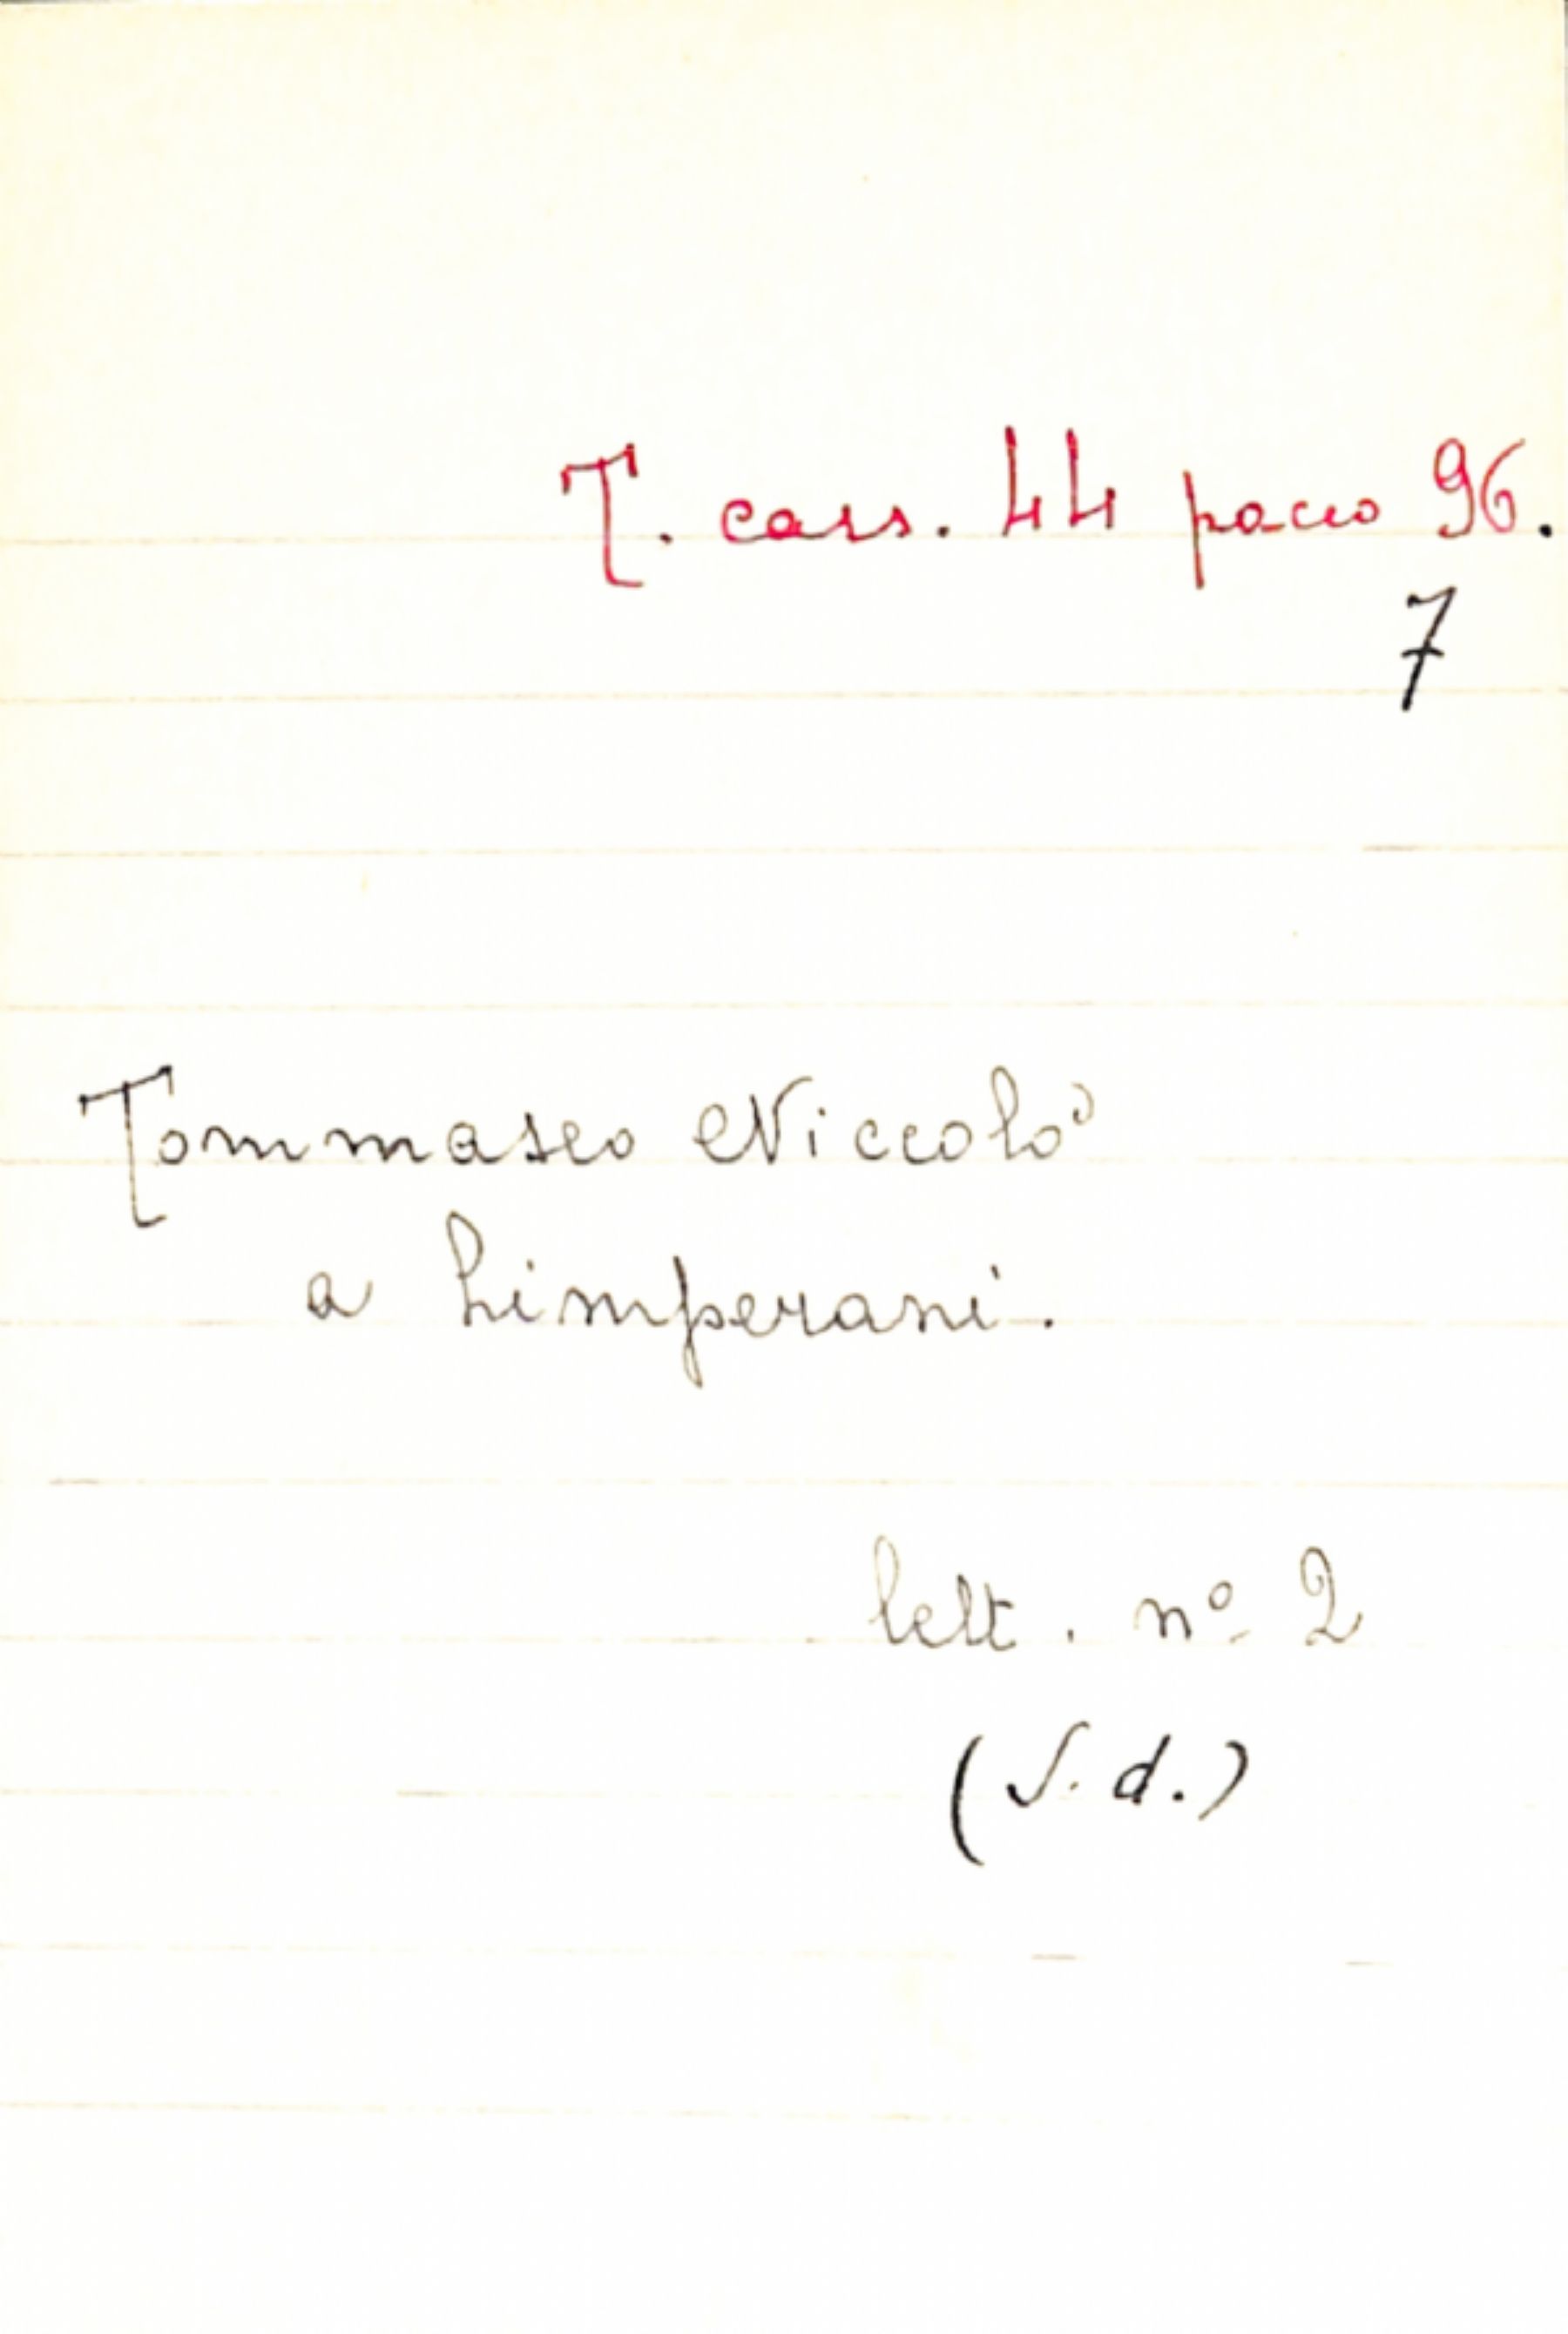 T. cass. 44 pacco 96.
7
Tommaseo Niccolò
a Limperani.
lett. nº 2
(S. d.)